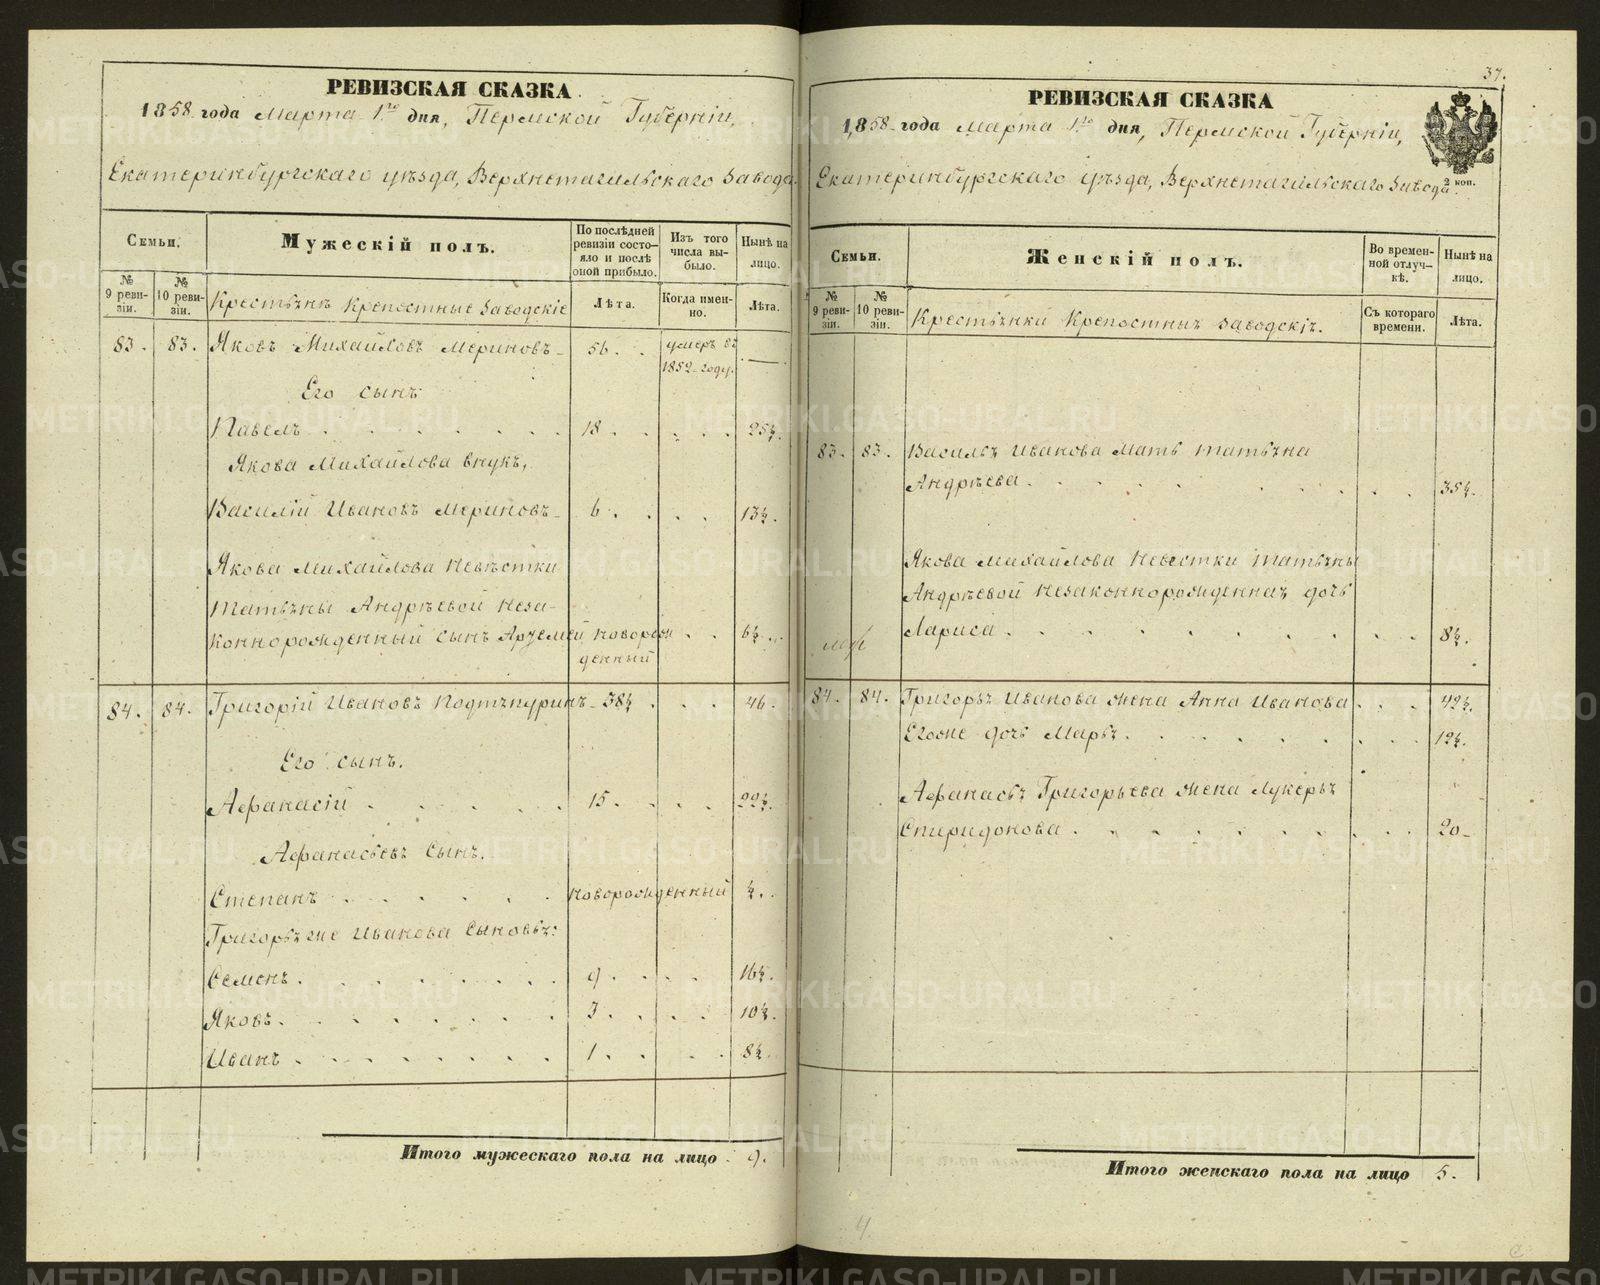 РЕВИЗСКАЯ СКАЗКА
1858 года Марта 1го дня, Пермской Губерніи,
Екатеринбургскаго уѣзда, Верхнетагильскаго Завода.
Семьи.
№ 9 ревизіи.
№ 10 ревизіи.
Мужескій полъ.
Крестьянѣ Крепостные Заводскіе
По послѣдней ревизіи состояло и послѣ оной прибыло.
Лѣта.
Изъ того числа выбыло.
Когда именно.
Нынѣ на лицо.
Лѣта.
83. 83. Яковъ Михайловъ Мериновъ 56. умеръ въ 1852 году. —
Его сынъ
Павелъ 18. 25½.
Якова Михайлова внукъ,
Василій Ивановъ Мериновъ 6. 13½.
Якова Михайлова Невѣстки
Татьяны Андрѣевой Неза-
коннорожденный сынъ Артемій новорож- 6½.
денный
84. 84. Григорій Ивановъ Подтяпуринъ 38½. 46.
Его сынъ.
Афанасій 15. 22½.
Афанасьевъ Сынъ.
Степанъ новорожденный ½.
Григорья же Иванова Сыновья:
Семенъ. 9. 16½.
Яковъ. 3. 10½.
Иванъ 1. 8½.
Итого мужескаго пола на лицо 9.
37.
РЕВИЗСКАЯ СКАЗКА
1858 года Марта 1го дня, Пермской Губерніи,
Екатеринбургскаго уѣзда, Верхнетагильскаго Завода
2 коп.
Семьи.
№ 9 ревизіи.
№ 10 ревизіи.
Женскій полъ.
Крестьянки Крепостныя Заводскія.
Во временной отлучкѣ.
Съ котораго времени.
Нынѣ на лицо.
Лѣта.
83. 83. Василья Иванова Мать Татьяна
Андрѣева. 35½.
Якова Михайлова Невестки Татьяны
Андрѣевой Незаконнорожденная дочь
Лариса. 8½.
84. 84. Григорья Иванова жена Анна Иванова 42½.
Егоже дочь Марья. 12½.
Афанасья Григорьева жена Лукерья
Спиридонова. 20
Итого женскаго пола на лицо 5.
4
METRIKI.GASO-URAL.RU